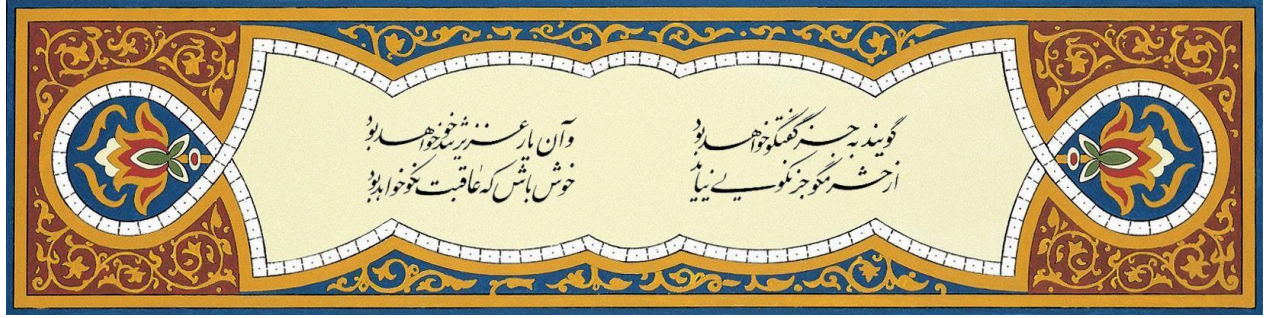 گویند به حشر گفتگو خواهد بود وآن یار عزیز تند خو خواهد بود
از حشر مگو جز نکویی نیاید خوش باش که عاقبت نکو خواهد بود